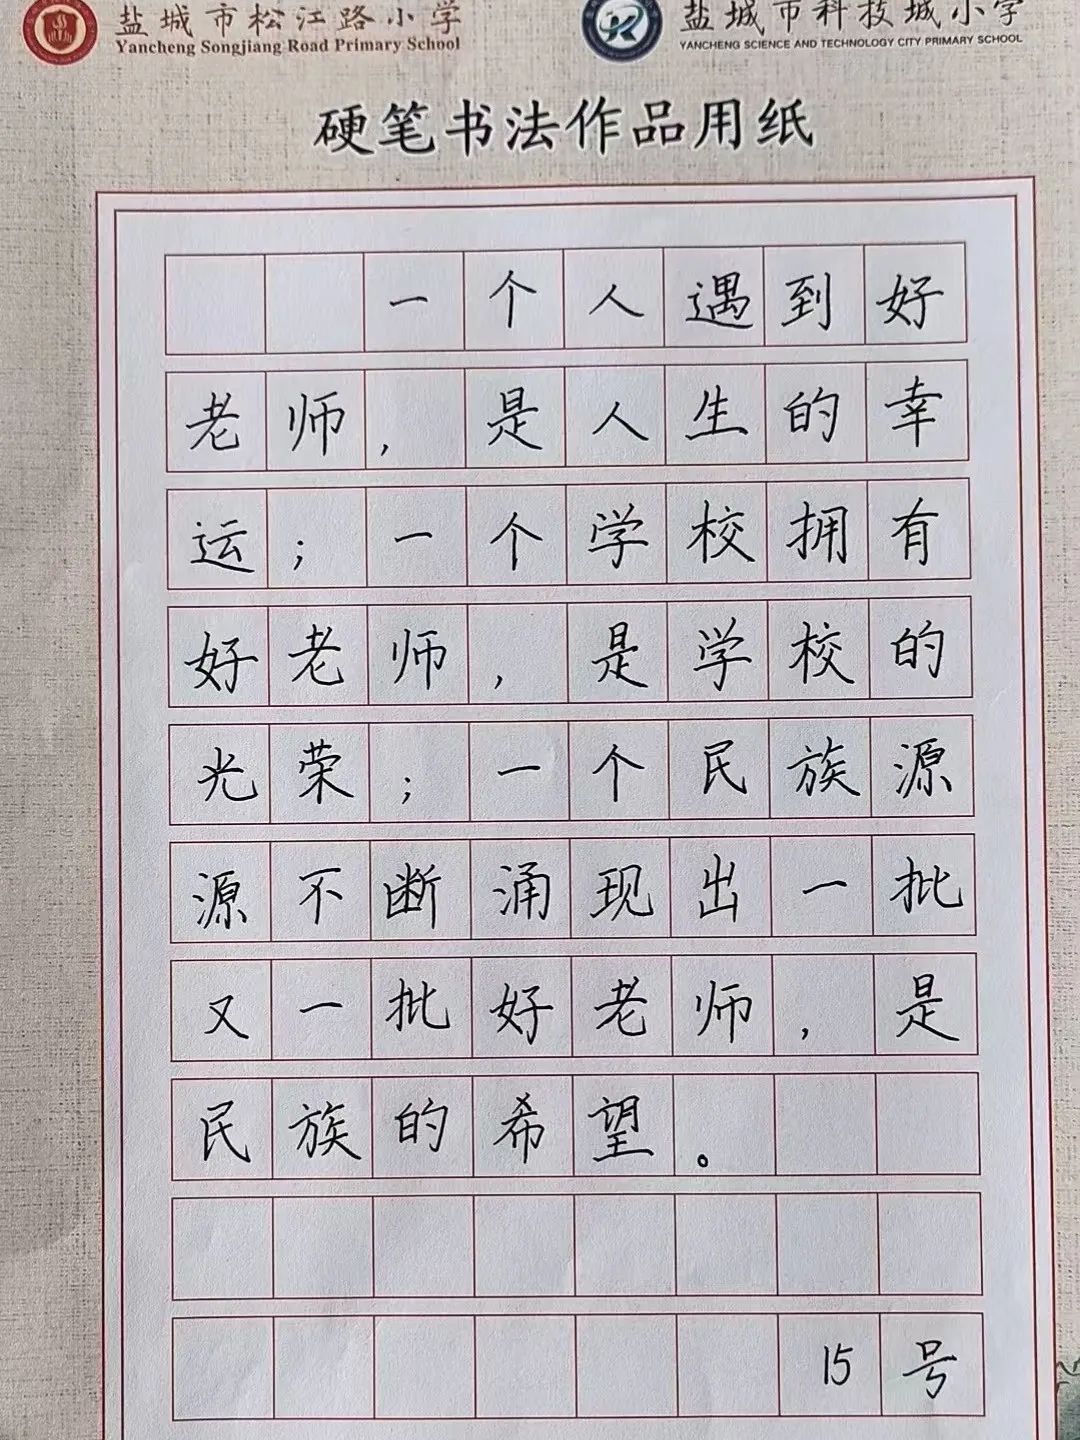 盐城市松江路小学 盐城市科技城小学
Yancheng Songjiang Road Primary School YANCHENG SCIENCE AND TECHNOLOGY CITY PRIMARY SCHOOL
硬笔书法作品用纸
一个人遇到好
老师，是人生的幸
运；一个学校拥有
好老师，是学校的
光荣；一个民族源
源不断涌现出一批
又一批好老师，是
民族的希望。
15号